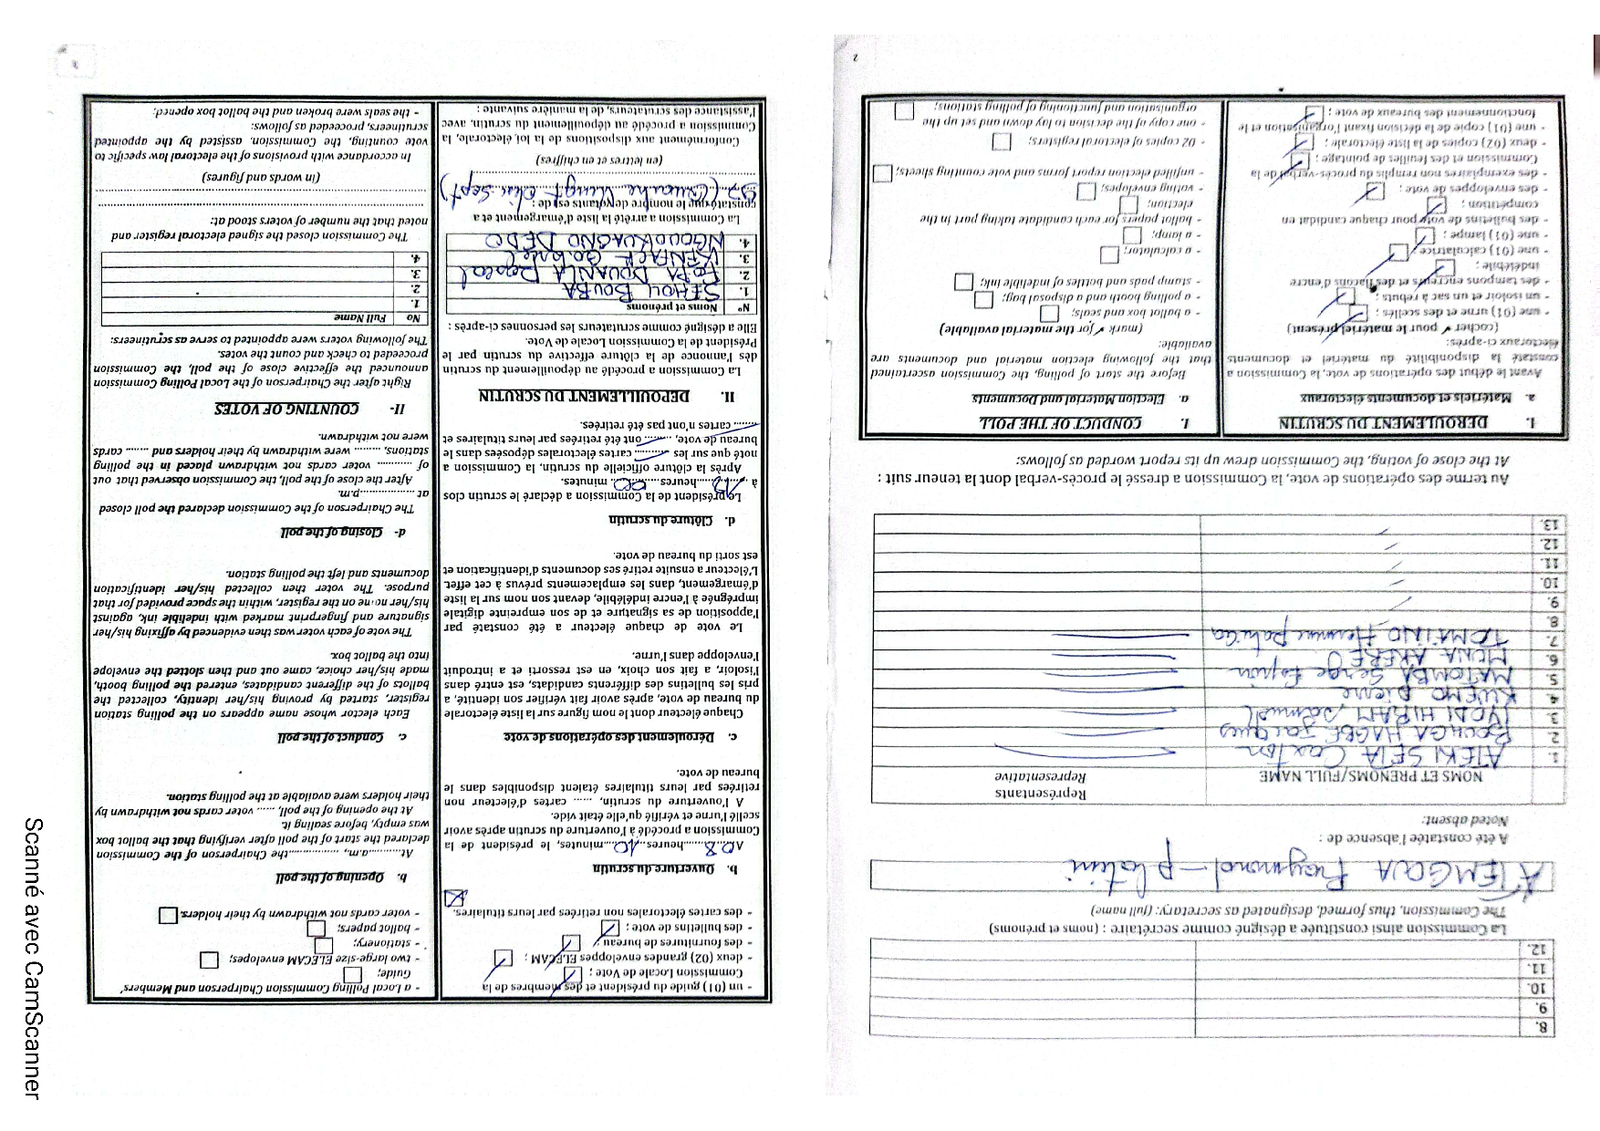 2
8.
9.
10.
11.
12.
La Commission ainsi constituée a désigné comme secrétaire : (noms et prénoms)
The Commission, thus formed, designated as secretary: (full name)
ATEMGOUA Raymond-platini
A été constatée l'absence de :
Noted absent:
NOMS ET PRENOMS/FULL NAME
Représentants
Representative
1. ATEKI SETA Caxton
2. BOUNGA HAGBE Jacques
3. IYODI HIRAM Samuel
4. KWEMO Pierre
5. MATOMBA Serge Espoir
6. MUNA AKERE
7. TOMAINO Hermine Patricia
8.
9.
10.
11.
12.
13.
Au terme des opérations de vote, la Commission a dressé le procès-verbal dont la teneur suit :
At the close of voting, the Commission drew up its report worded as follows:
I. DEROULEMENT DU SCRUTIN
a. Matériels et documents électoraux
Avant le début des opérations de vote, la Commission a
constaté la disponibilité du matériel et documents
électoraux ci-après:
(cocher ✓ pour le matériel présent)
- une (01) urne et des scellés ;
- un isoloir et un sac à rebuts ;
- des tampons encreurs et des flacons d'encre
indélébile ;
- une (01) calculatrice ;
- une (01) lampe ;
- des bulletins de vote pour chaque candidat en
compétition ;
- des enveloppes de vote ;
- des exemplaires non remplis du procès-verbal de la
Commission et des feuilles de pointage ;
- deux (02) copies de la liste électorale ;
- une (01) copie de la décision fixant l'organisation et le
fonctionnement des bureaux de vote ;
I. CONDUCT OF THE POLL
a. Election Material and Documents
Before the start of polling, the Commission ascertained
that the following election material and documents are
available:
(mark ✓ for the material available)
- a ballot box and seals;
- a polling booth and a disposal bag;
- stamp pads and bottles of indelible ink;
- a calculator;
- a lamp;
- ballot papers for each candidate taking part in the
election;
- voting envelopes;
- unfilled election report forms and vote counting sheets;
- 02 copies of electoral registers;
- one copy of the decision to lay down and set up the
organisation and functioning of polling stations;
- un (01) guide du président et des membres de la
Commission Locale de Vote ;
- deux (02) grandes enveloppes ELECAM ;
- des fournitures de bureau ;
- des bulletins de vote ;
- des cartes électorales non retirées par leurs titulaires.
b. Ouverture du scrutin
A 08 heures 10 minutes, le président de la
Commission a procédé à l'ouverture du scrutin après avoir
scellé l'urne et vérifié qu'elle était vide.
A l'ouverture du scrutin, ...... cartes d'électeur non
retirées par leurs titulaires étaient disponibles dans le
bureau de vote.
c. Déroulement des opérations de vote
Chaque électeur dont le nom figure sur la liste électorale
du bureau de vote, après avoir fait vérifier son identité, a
pris les bulletins des différents candidats, est entré dans
l'isoloir, a fait son choix, en est ressorti et a introduit
l'enveloppe dans l'urne.
Le vote de chaque électeur a été constaté par
l'apposition de sa signature et de son empreinte digitale
imprégnée à l'encre indélébile, devant son nom sur la liste
d'émargement, dans les emplacements prévus à cet effet.
L'électeur a ensuite retiré ses documents d'identification et
est sorti du bureau de vote.
d. Clôture du scrutin
Le président de la Commission a déclaré le scrutin clos
à 18 heures 00 minutes.
Après la clôture officielle du scrutin, la Commission a
noté que sur les ...... cartes électorales déposées dans le
bureau de vote, ...... ont été retirées par leurs titulaires et
...... cartes n'ont pas été retirées.
II. DEPOUILLEMENT DU SCRUTIN
La Commission a procédé au dépouillement du scrutin
dès l'annonce de la clôture effective du scrutin par le
Président de la Commission Locale de Vote.
Elle a désigné comme scrutateurs les personnes ci-après :
N° Noms et prénoms
1. SEHOU BOUBA
2. FOPA DOUANLA Pascal
3. KENFACK Gabriel
4. NGOUOKUAGNO DEDO
La Commission a arrêté la liste d'émargement et a
constaté que le nombre de votants est de :
97 (Quatre Vingt dix Sept)
(en lettres et en chiffres)
Conformément aux dispositions de la loi électorale, la
Commission a procédé au dépouillement du scrutin, avec
l'assistance des scrutateurs, de la manière suivante :
- a Local Polling Commission Chairperson and Members'
Guide;
- two large-size ELECAM envelopes;
- stationery;
- ballot papers;
- voter cards not withdrawn by their holders.
b. Opening of the poll
At............a.m., ...............the Chairperson of the Commission
declared the start of the poll after verifying that the ballot box
was empty, before sealing it.
At the opening of the poll, ...... voter cards not withdrawn by
their holders were available at the polling station.
c. Conduct of the poll
Each elector whose name appears on the polling station
register, started by proving his/her identity, collected the
ballots of the different candidates, entered the polling booth,
made his/her choice, came out and then slotted the envelope
into the ballot box.
The vote of each voter was then evidenced by affixing his/her
signature and fingerprint marked with indelible ink, against
his/her name on the register, within the space provided for that
purpose. The voter then collected his/her identification
documents and left the polling station.
d- Closing of the poll
The Chairperson of the Commission declared the poll closed
at ..................p.m.
After the close of the poll, the Commission observed that out
of .......... voter cards not withdrawn placed in the polling
stations, ........ were withdrawn by their holders and ...... cards
were not withdrawn.
II- COUNTING OF VOTES
Right after the Chairperson of the Local Polling Commission
announced the effective close of the poll, the Commission
proceeded to check and count the votes.
The following voters were appointed to serve as scrutineers:
No Full Name
1.
2.
3.
4.
The Commission closed the signed electoral register and
noted that the number of voters stood at:
(in words and figures)
In accordance with provisions of the electoral law specific to
vote counting, the Commission, assisted by the appointed
scrutineers, proceeded as follows:
- the seals were broken and the ballot box opened;
Scanné avec CamScanner